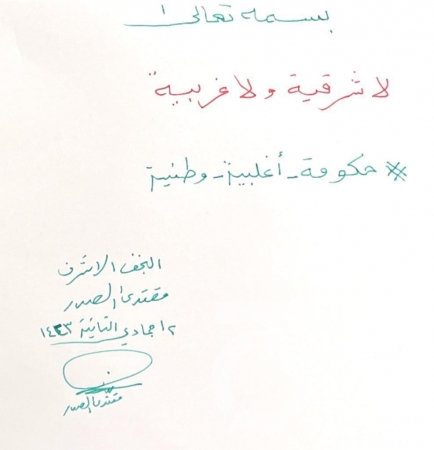 بسمه تعالى
لا شرقية ولا غربية"
# حكومة_أغلبية_وطنية
النجف الاشرف
مقتدى الصدر
١٢ جمادي الثانية ١٤٤٣
مقتدى الصدر